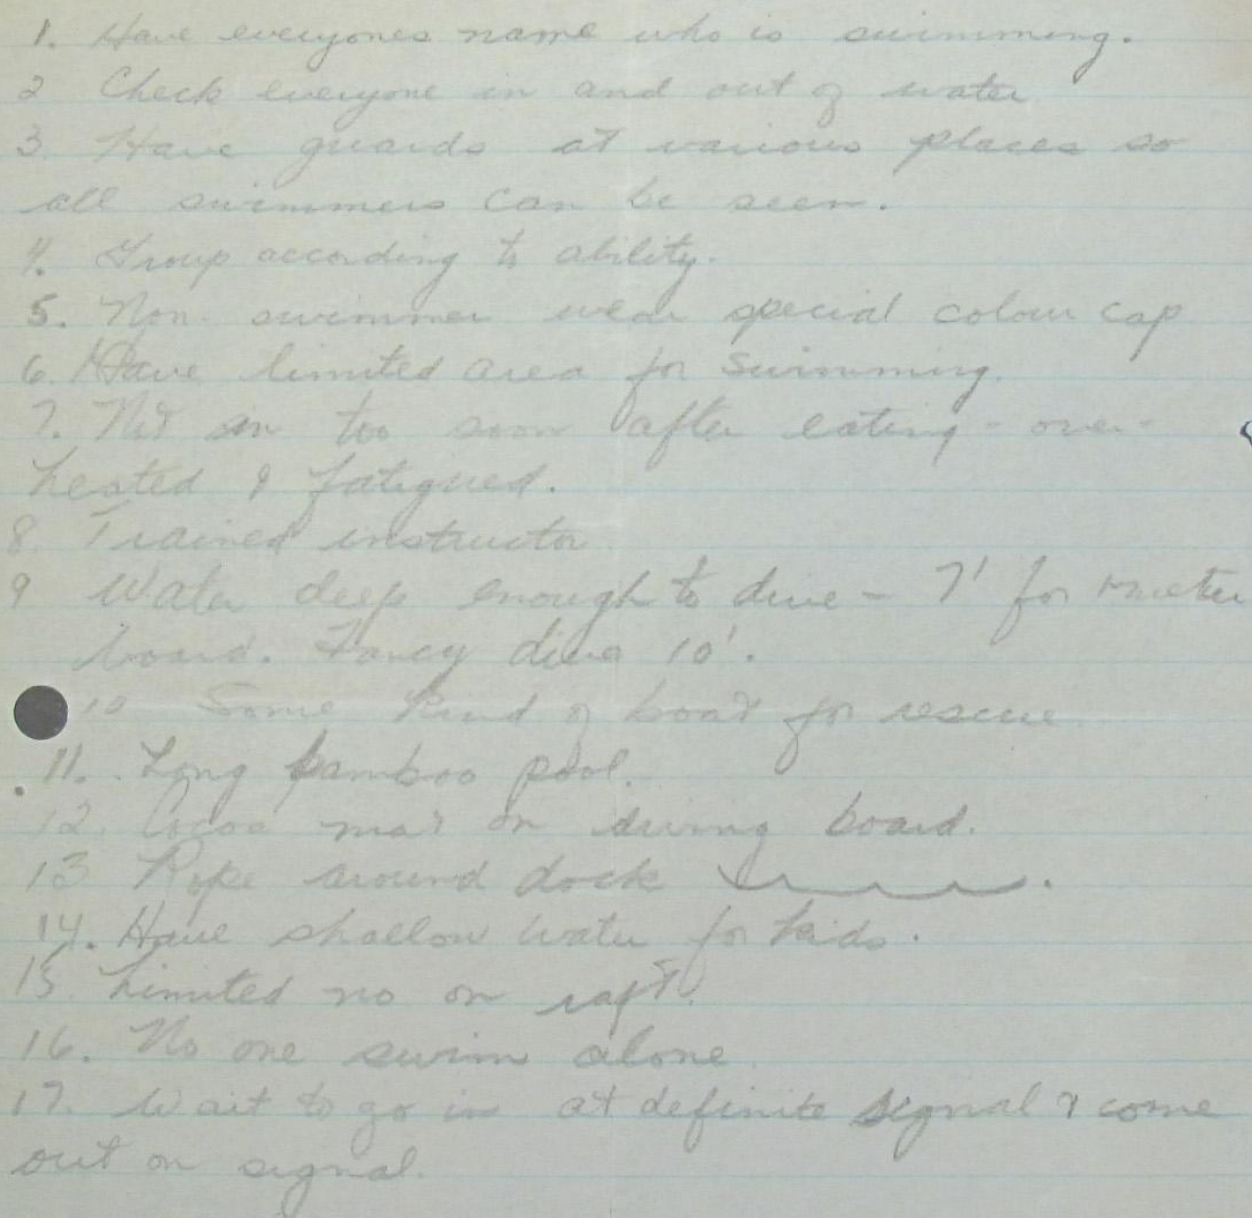 1. Have everyones name who is swimming.
2 Check everyone in and out of water
3. Have guards at various places so
all swimmers can be seen.
4. Group according to ability.
5. Non swimmer wear special colour cap
6. Have limited area for swimming.
7. Not in too soon after eating - over-
heated & fatigued.
8. Trained instructor
9 Water deep enough to dive - 7' for
board. Fancy dive 10'.
10 Some kind of boat for rescue
11. Long bamboo pool.
12. Cocoa mat on diving board.
13 Rope around dock
14. Have shallow water for kids.
15. Limited no on raft.
16. No one swim alone
17. Wait to go in at definite signal & come
out on signal.